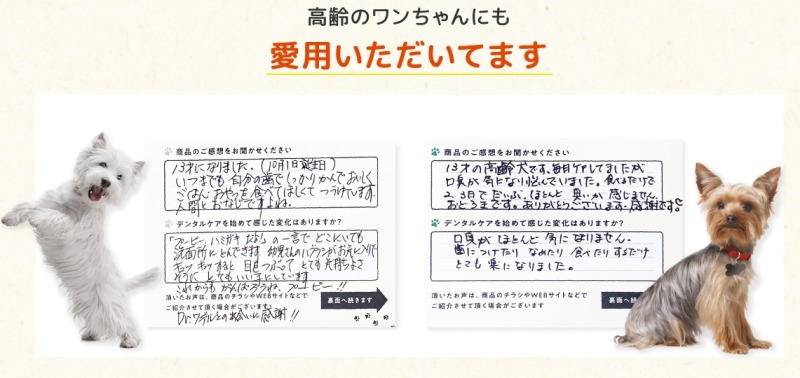 高齢のワンちゃんにも
愛用いただいてます
商品のご感想をお聞かせください
13才になりました。(10月1日誕生日)
いつまでも自分の歯でしっかりかんでおいしく
ごはん、おやつを食べてほしくてつづけています。
人間とおなじですよね。
デンタルケアを始めて感じた変化はありますか?
「プーピー、ハミガキだよ」の一言でどこにいても
洗面所にとんできます 幼児さんのハブラシがお気に入りで
キュッキュッすると目をつぶってとても気持ちよさ
そうにとてもいい子にしています
これからもがんばろうね、プーピー!!
頂いたお声は、商品のチラシやWEBサイトなどで
ご紹介させて頂く場合がございます
裏面へ続きます
Dr.ワデルとの出会いに感謝!!
商品のご感想をお聞かせください
13才の高齢犬です。毎日ケアしてましたが
口臭が気になり悩んでいました。食べるだけで
2、3日でだいぶ、ほとんど臭いが感じません。
おどろきです。ありがとうございます。感謝です。
デンタルケアを始めて感じた変化はありますか?
口臭がほとんど気になりません。
歯につけたりなめたり食べたりするだけ
とても楽になりました。
頂いたお声は、商品のチラシやWEBサイトなどで
ご紹介させて頂く場合がございます
裏面へ続きます